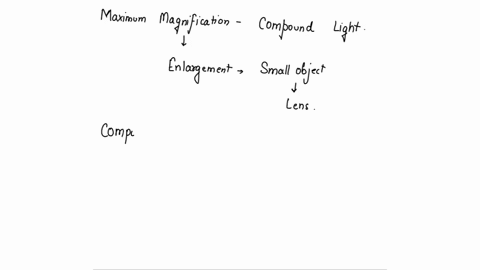 Maximum Magnification - Compound Light.
↓
Enlargement → Small object
↓
Lens.
Compo